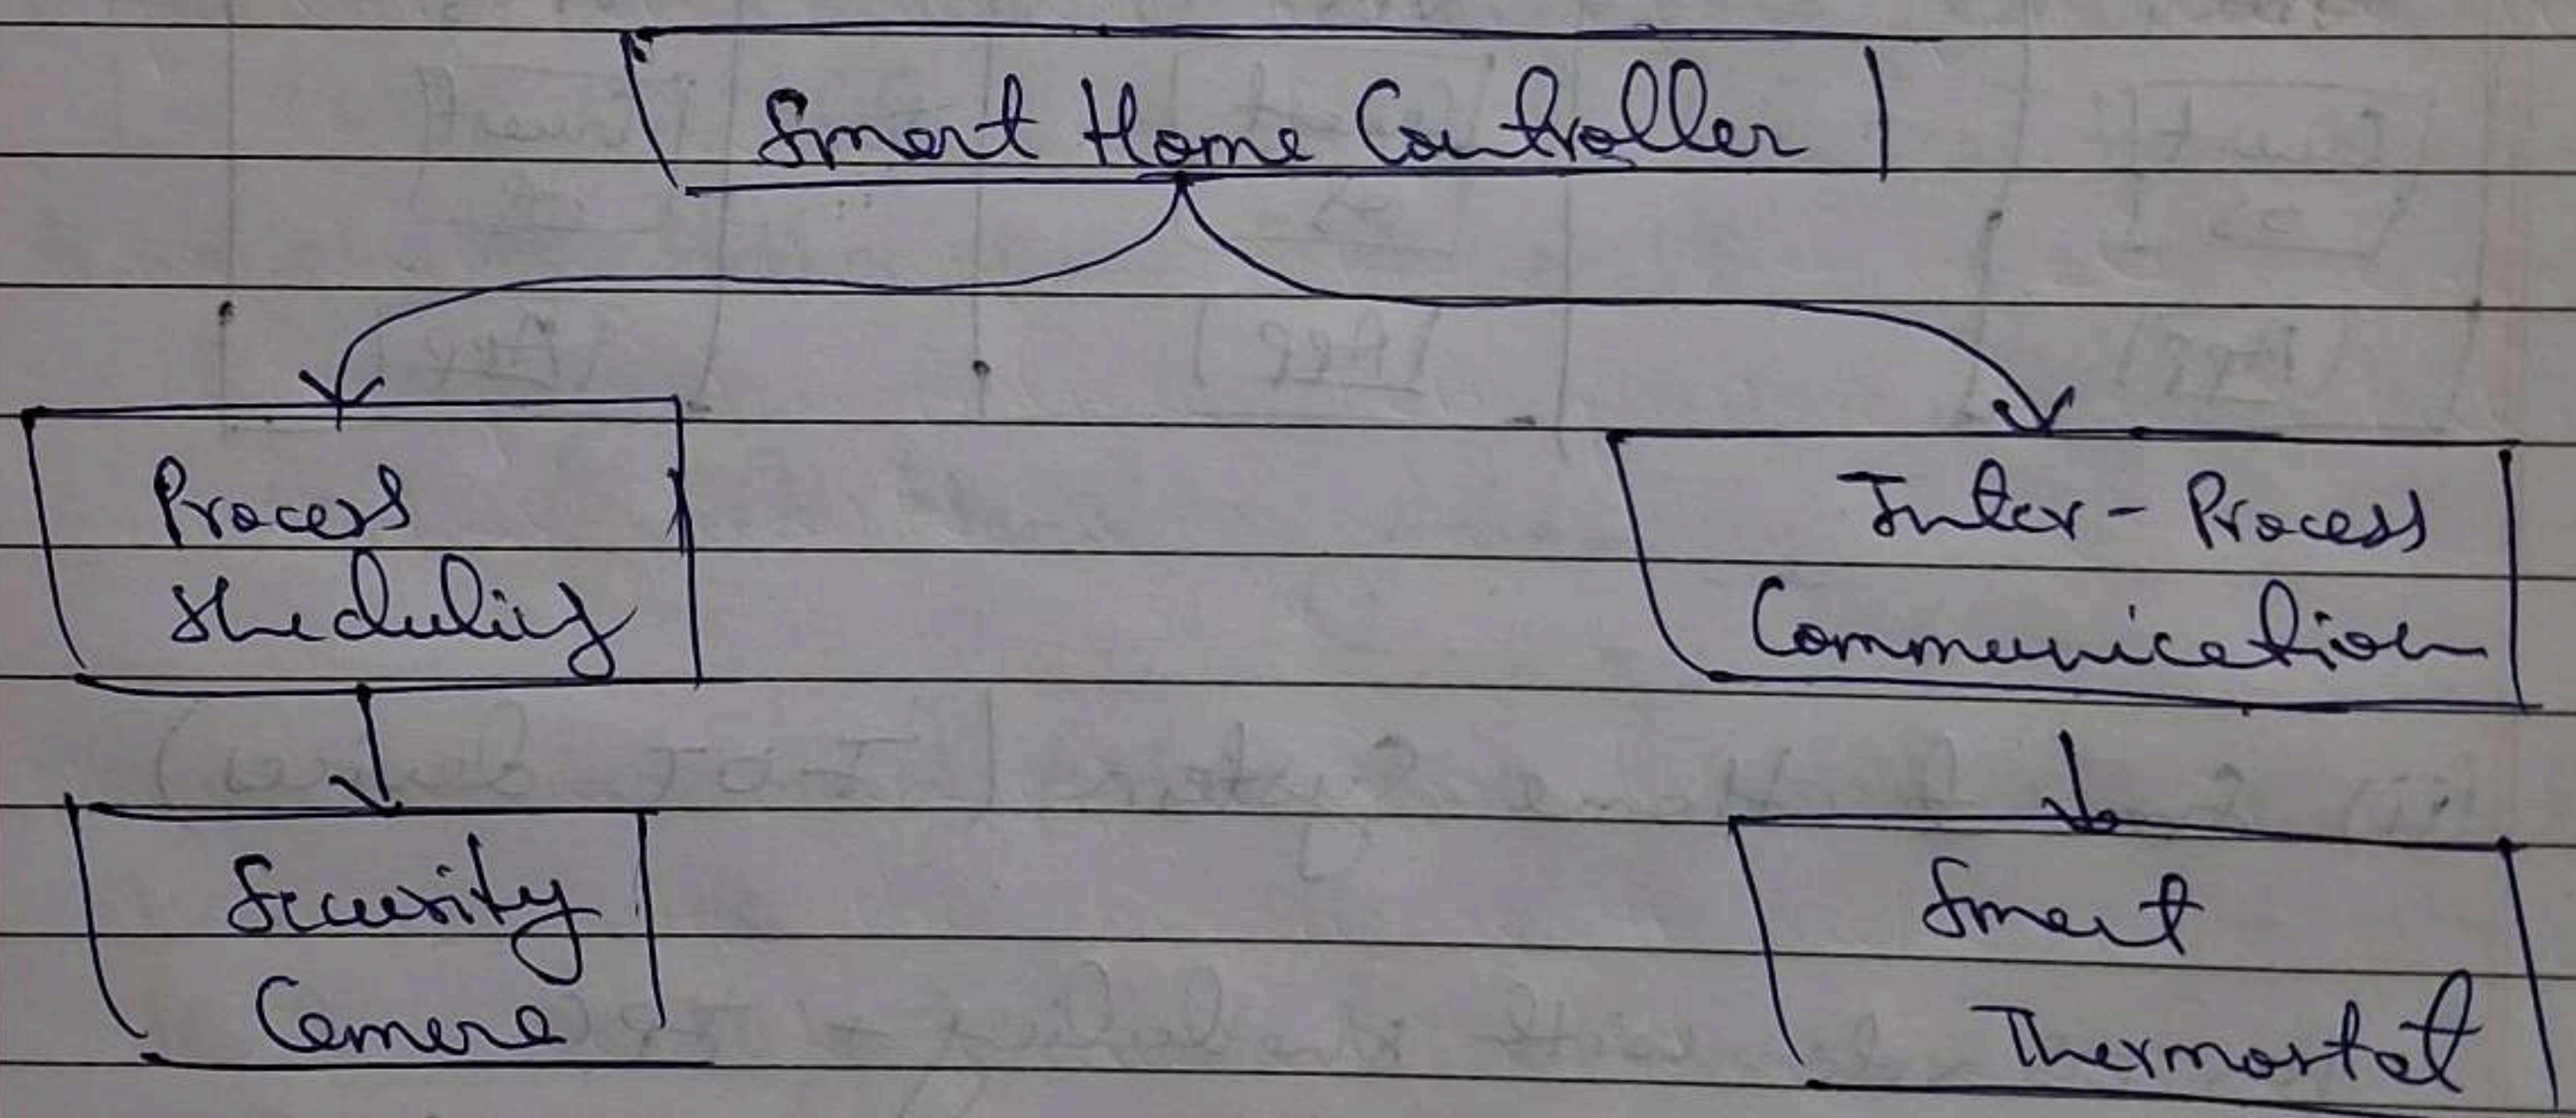 Smart Home Controller
Process
Sheduling
Inter - Process
Communication
Security
Camera
Smart
Thermostat